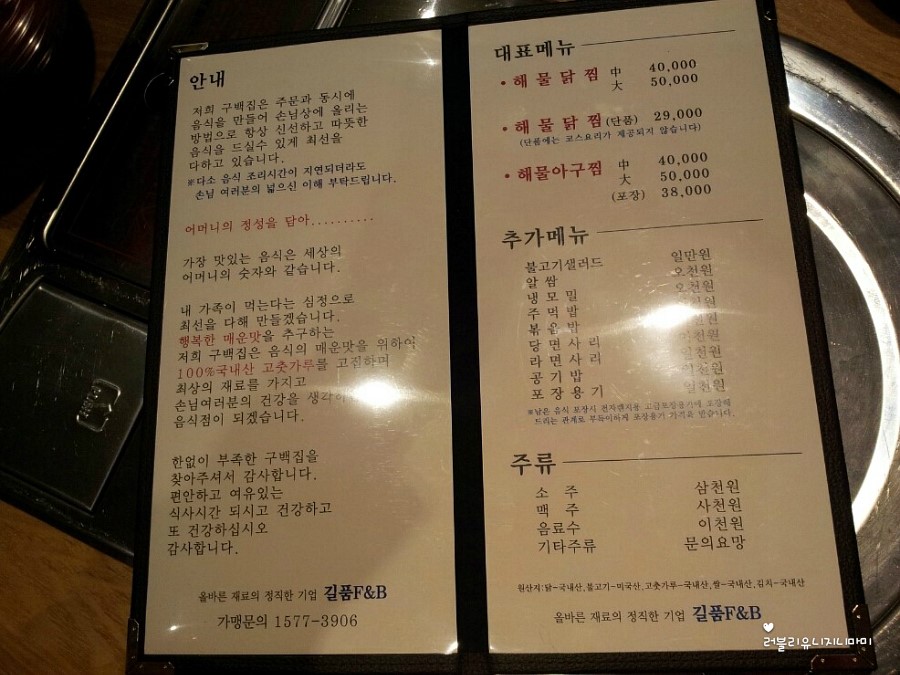 안내
저희 구백집은 주문과 동시에
음식을 만들어 손님상에 올리는
방법으로 항상 신선하고 따뜻한
음식을 드실수 있게 최선을
다하고 있습니다.
※다소 음식 조리시간이 지연되더라도
손님 여러분의 넓으신 이해 부탁드립니다.
어머니의 정성을 담아..........
가장 맛있는 음식은 세상의
어머니의 숫자와 같습니다.
내 가족이 먹는다는 심정으로
최선을 다해 만들겠습니다.
행복한 매운맛을 추구하는
저희 구백집은 음식의 매운맛을 위하여
100%국내산 고춧가루를 고집하며
최상의 재료를 가지고
손님여러분의 건강을
음식점이 되겠습니다.
한없이 부족한 구백집을
찾아주셔서 감사합니다.
편안하고 여유있는
식사시간 되시고 건강하고
또 건강하십시오
감사합니다.
올바른 재료의 정직한 기업 길품F&B
가맹문의 1577-3906
대표메뉴
• 해 물 닭 찜 中 40,000
大 50,000
• 해 물 닭 찜 (단품) 29,000
(단품에는 코스요리가 제공되지 않습니다)
• 해물아구찜 中 40,000
大 50,000
(포장) 38,000
추가메뉴
불고기샐러드 일만원
알 쌈 오천원
냉 모 밀 오천원
주 먹 밥
볶 음 밥
당 면 사 리
라 면 사 리
공 기 밥
포 장 용 기 일천원
※남은 음식 포장시 전자렌지용 고급포장용기에 포장해
드리는 관계로 부득이하게 포장용기 가격을 받습니다.
주류
소 주 삼천원
맥 주 사천원
음료수 이천원
기타주류 문의요망
원산지:닭-국내산,불고기-미국산,고춧가루-국내산,쌀-국내산,김치-국내산
올바른 재료의 정직한 기업 길품F&B
러블리유니지니마미